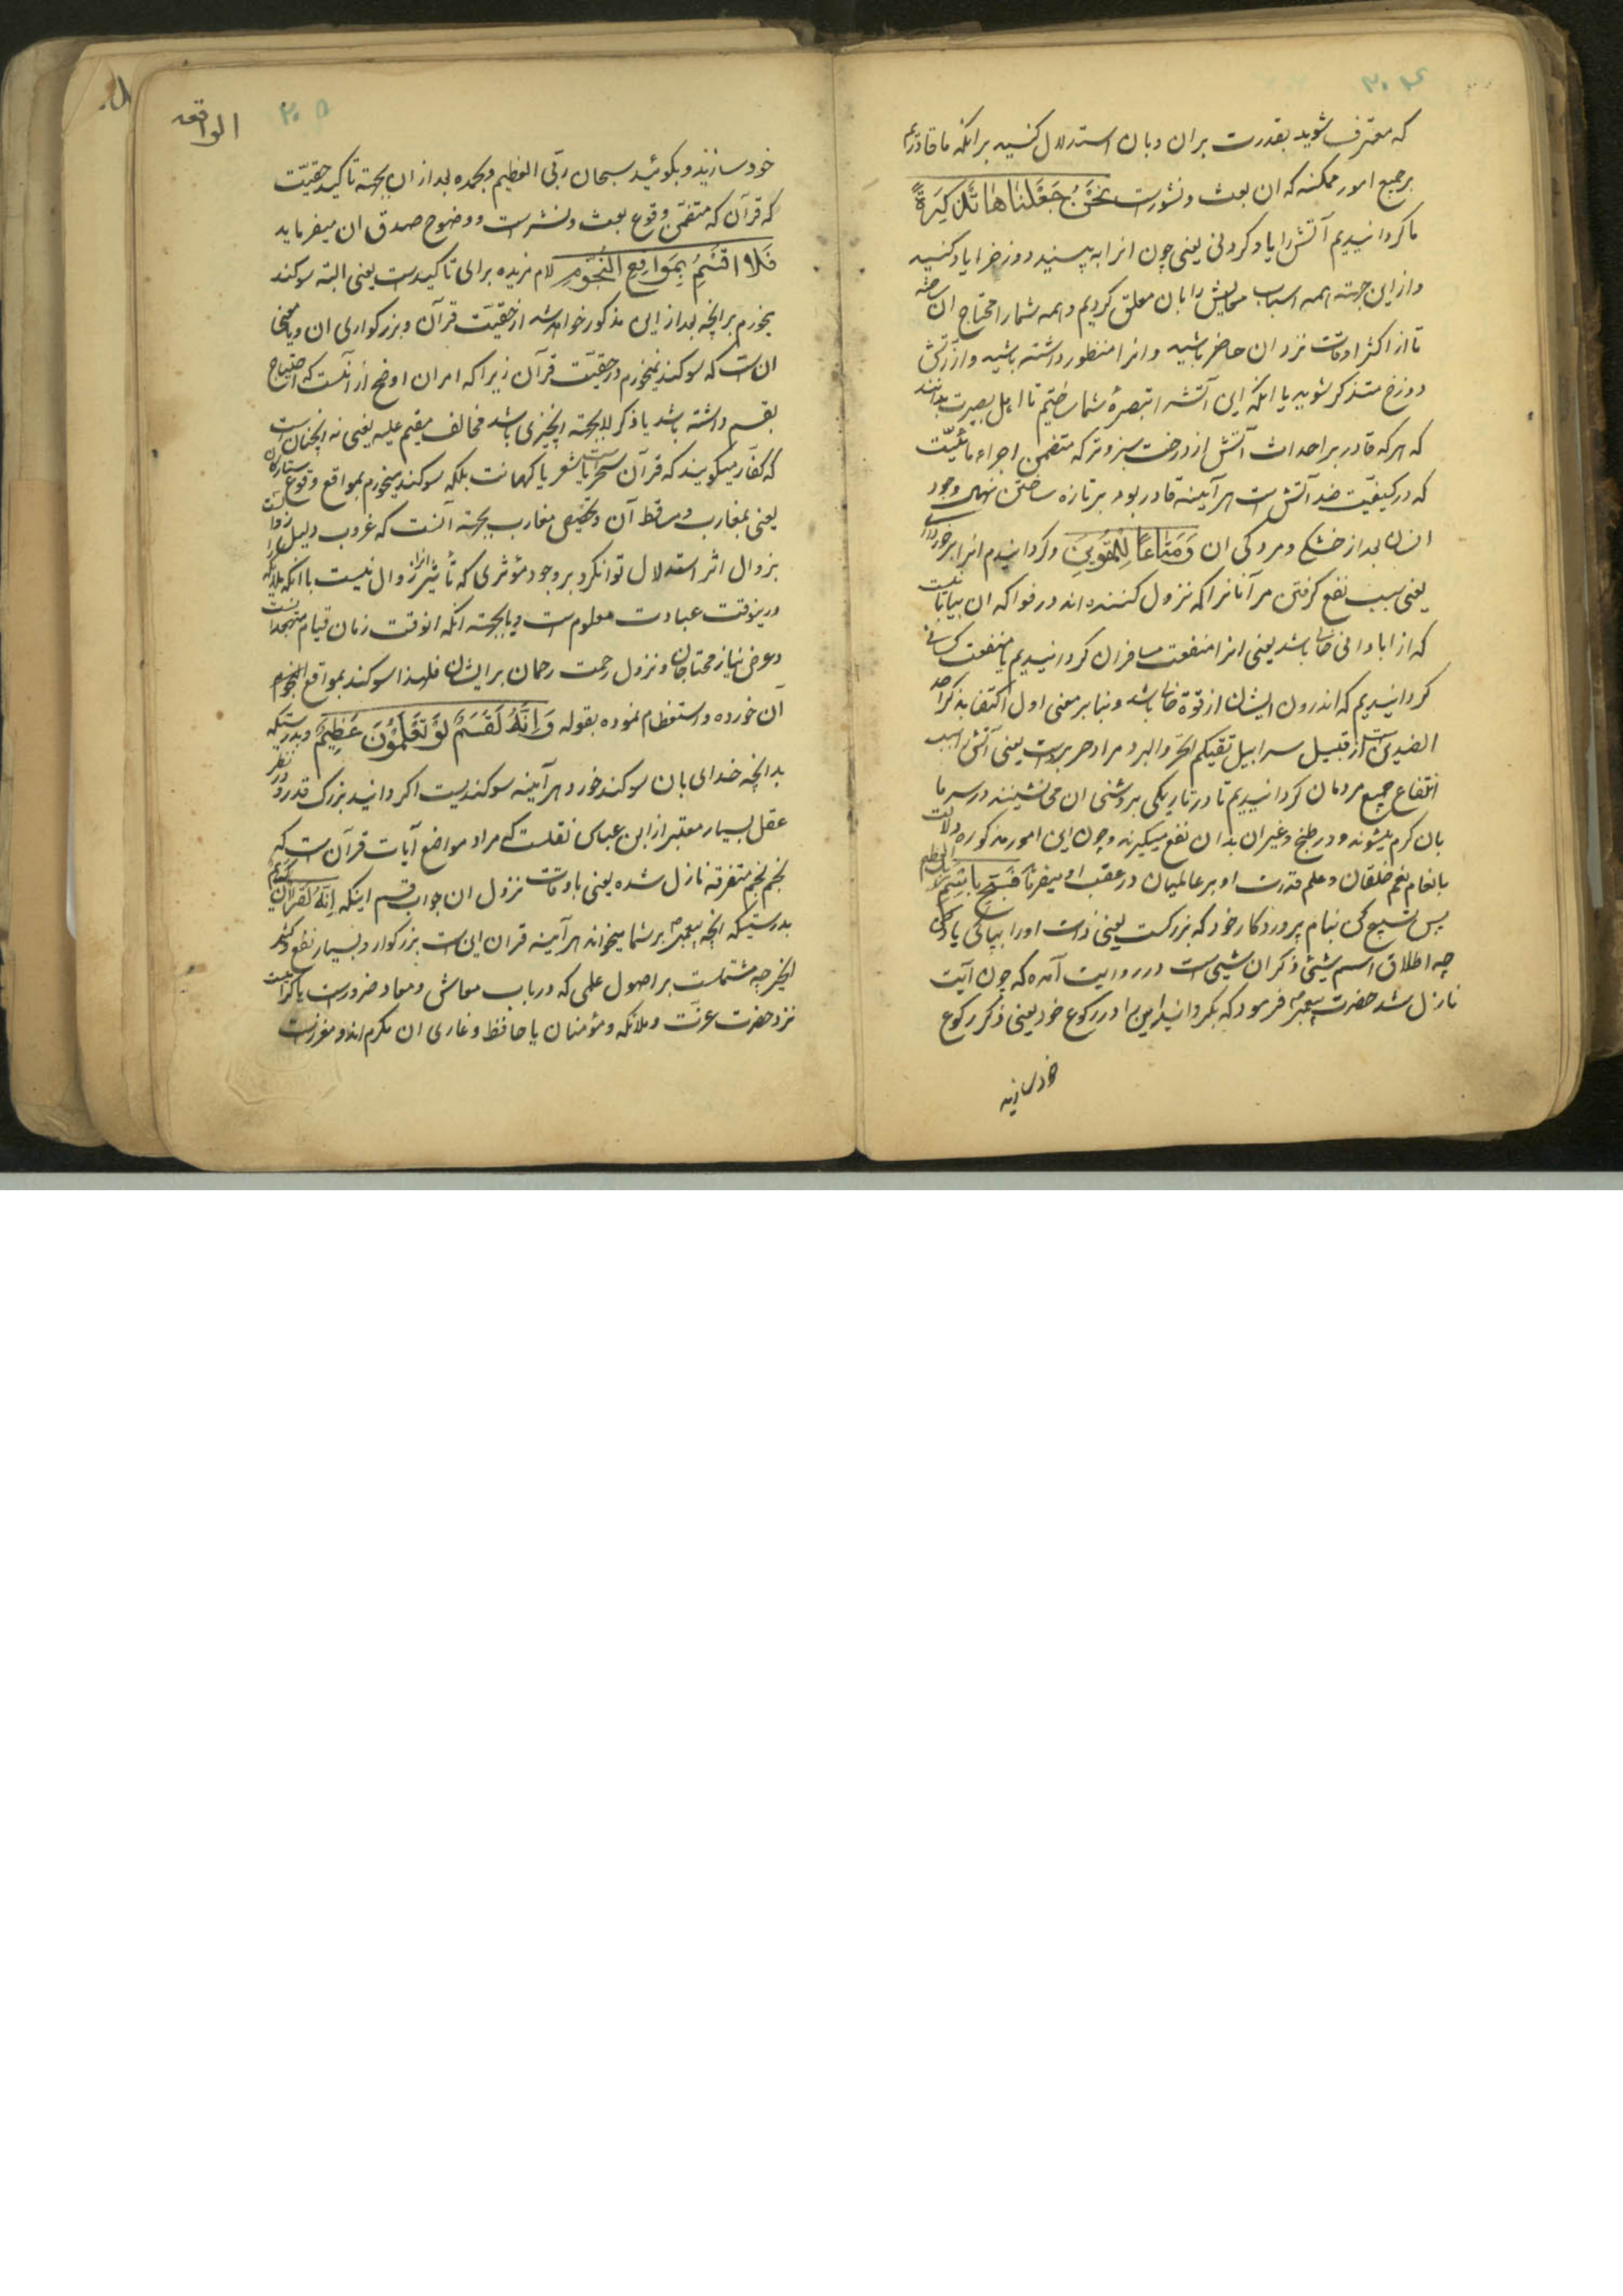 ۳۰۴
که معترف شوید بقدرت بران و بان استدلال کنید برانکه ما قادریم
بر جمیع امور ممکنه که ان بعث و نشورست نَحْنُ جَعَلْنَاهَا تَذْكِرَةً
ما کردانیدیم آتش را یاد کردنی یعنی چون انرا به بینید دوزخ را یاد کنید
و از این جهته همه اسباب معایش را بان معلق کردیم و همه شما را محتاج ان
تا از اکثر اوقات نزد ان حاضر باشید و انرا منظور داشته باشید و از آتش
دوزخ متذکر شوید یا انکه این آتش را تبصرهٔ شما ساختیم تا اهل بصیرت بدانند
که هر که قادر بر احداث آتش از درخت سبز و تر که متضمن اجزاء مائیّت
که در کیفیت ضد آتش است هر آیینه قادر بود بر تازه ساختن وجود
انسان بعد از خشکی و مردکی ان وَمَتَاعًا لِلْمُقْوِينَ و کردانیدیم انرا برخورداری
یعنی سبب نفع کرفتن مر آنانرا که نزول کننده اند در قوا که ان بیابانیست
که از ابادانی خالی باشد یعنی انرا منفعت مسافران کردانیدیم یا منفعت کسانی
کردانیدیم که اندرون ایشان از قوة خالی باشد و بنا بر معنی اول اکتفا بذکر احد
الضدین است از قبیل سرابیل تقیکم الحرّ و البرد مراد حر و بردست یعنی آتش را سبب
انتفاع جمیع مردمان کردانیدیم تا در تاریکی بروشنی ان می نشینند و در سرما
بان کرم میشوند و در طبخ و غیر ان بدان نفع میکیرند و چون این امور مذکوره دلالت
بانعام نعم خلقان و علم قدرت او بر عالمیان در عقب او میفرماید فَسَبِّحْ بِاسْمِ رَبِّكَ الْعَظِيمِ
پس تسبیح کن بنام پروردکار خود که بزرکست یعنی ذات او را بپاکی یاد کن
چه اطلاق اسم شیئ ذکر ان شیئ است در روایت آمده که چون آیت
نازل شد حضرت پیغمبر فرمود که بکردانید این را در رکوع خود یعنی ذکر رکوع
خود سازید
الواقعه
۳۰۵
خود سازید و بکوئید سبحان ربّی العظیم و بحمده بعد از ان بجهته تاکید حقیّت
که قرآن که متضمّن وقوع بعث و نشرست و وضوح صدق ان میفرماید
فَلَا أُقْسِمُ بِمَوَاقِعِ النُّجُومِ لام مزیده برای تاکیدست یعنی البته سوکند
بخورم برانچه بعد از این مذکور خواهد شد از حقیّت قرآن و بزرکواری ان و یا معنی
ان است که سوکند نمیخورم در حقیّت قرآن زیرا که امر ان اوضح از آنست که احتیاج
بقسم داشته باشد یا ذکر لا بجهته چیزی باشد مخالف مقسم علیه یعنی نه انچنان است
که کفّار میکویند که قرآن سحر است یا شعر یا کهانت بلکه سوکند میخورم بمواقع وقوع ستارکان
یعنی بمغارب و مساقط آن و تخصیص مغارب بجهته آنست که غروب دلیل زوال است
بزوال اثر استدلال توان کرد بر وجود مؤثری که تأثیر او را زوال نیست با انکه
درینوقت عبادت معلوم است و یا بجهته انکه انوقت زمان قیام متهجدانست
و عرض نیاز محتاجان و نزول رحمت رحمان بر ایشان فلهذا سوکند بمواقع النجوم
آن خورده و استعظام نموده بقوله وَإِنَّهُ لَقَسَمٌ لَوْ تَعْلَمُونَ عَظِيمٌ و بدرستیکه
بدانچه خدای بان سوکند خورد هر آیینه سوکندیست اکر دانید بزرک قدر و در نظر
عقل بسیار معتبر از ابن عباس نقلست که مراد مواضع آیات قرآن است که
نجم نجم متفرقه نازل شده یعنی باوقات نزول ان جواب قسم اینکه إِنَّهُ لَقُرْآنٌ كَرِيمٌ
بدرستیکه انچه پیغمبر بر شما میخواند هر آیینه قران این است بزرکوار و بسیار نفع و کثیر
الخیر چه مشتملست بر اصول علمی که در باب معاش و معاد ضرورست یا کرامیست
نزد حضرت عزّت و ملائکه و مؤمنان یا حافظ و قاری ان مکرم اند و معززست